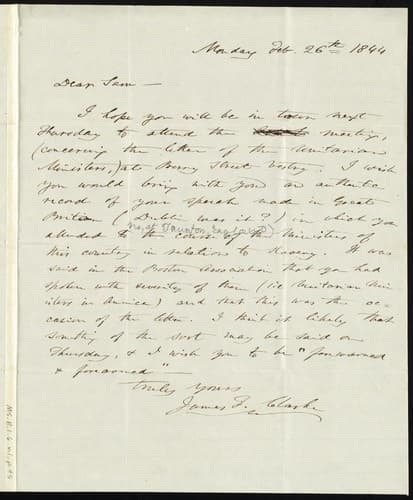 Monday Feb. 26th 1844
Dear Sam —
I hope you will be in town next
Thursday to attend the meeting,
(concerning the letter of the Unitarian
Ministers,) at Berry Street Vestry. I wish
you would bring with you an authentic
record of your speech made in Great
Britain (Dublin was it?) in which you
No, at Taunton, England
alluded to the course of the Ministers of
this country in relations to Slavery. It was
said in the Boston Association that you had
spoken with severity of them (i.e. Unitarian Min
isters in America) and that this was the oc-
casion of the letter. I think it likely that
something of the sort may be said on
Thursday, & I wish you to be "forewarned
& forearmed" —
truly yours
James F. Clarke